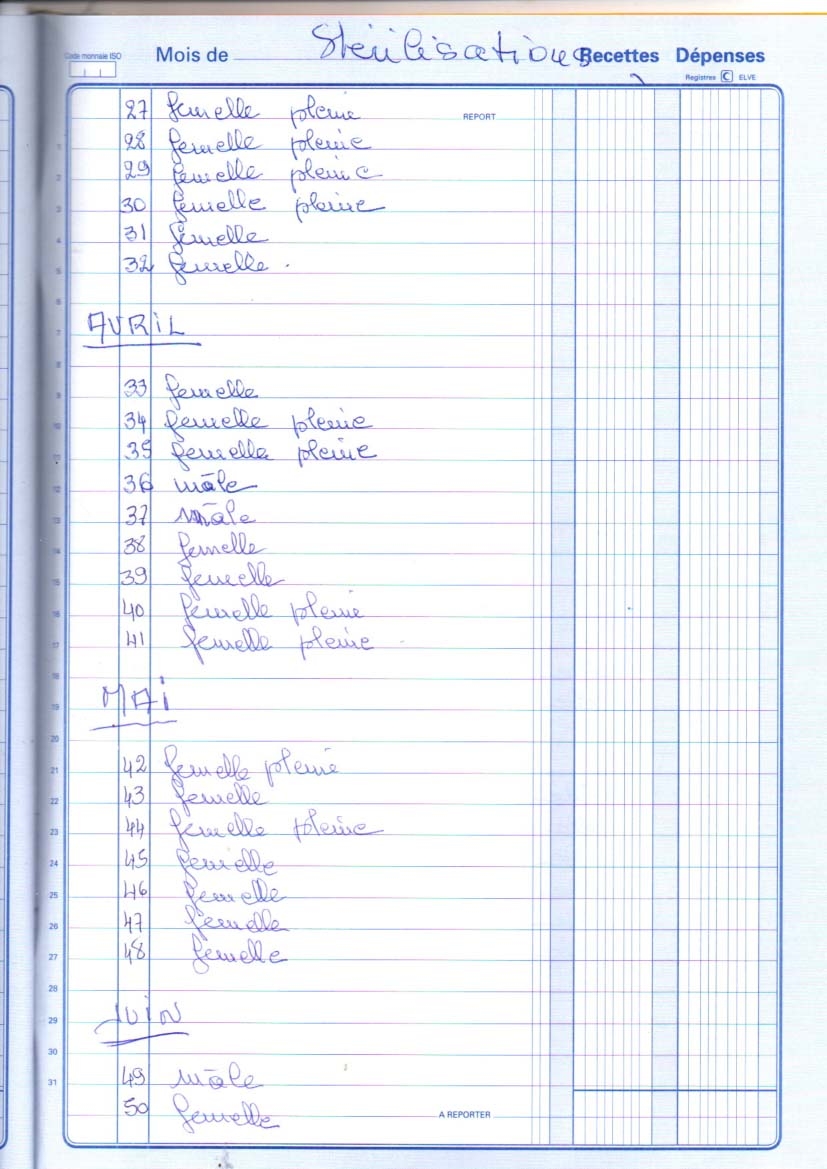 Code monnaie ISO Mois de Stérilisations Recettes Dépenses
Registres C ELVE
27 femelle pleine REPORT
1 28 femelle pleine
2 29 femelle pleine
3 30 femelle pleine
4 31 femelle
5 32 femelle.
6
7 AVRiL
8
9 33 femelle
10 34 femelle pleine
11 35 femelle pleine
12 36 mâle
13 37 mâle
14 38 femelle
15 39 femelle
16 40 femelle pleine
17 41 femelle pleine
18
19 MAi
20
21 42 femelle pleine
22 43 femelle
23 44 femelle pleine
24 45 femelle
25 46 femelle
26 47 femelle
27 48 femelle
28
29 JUiN
30
31 49 mâle
50 femelle A REPORTER